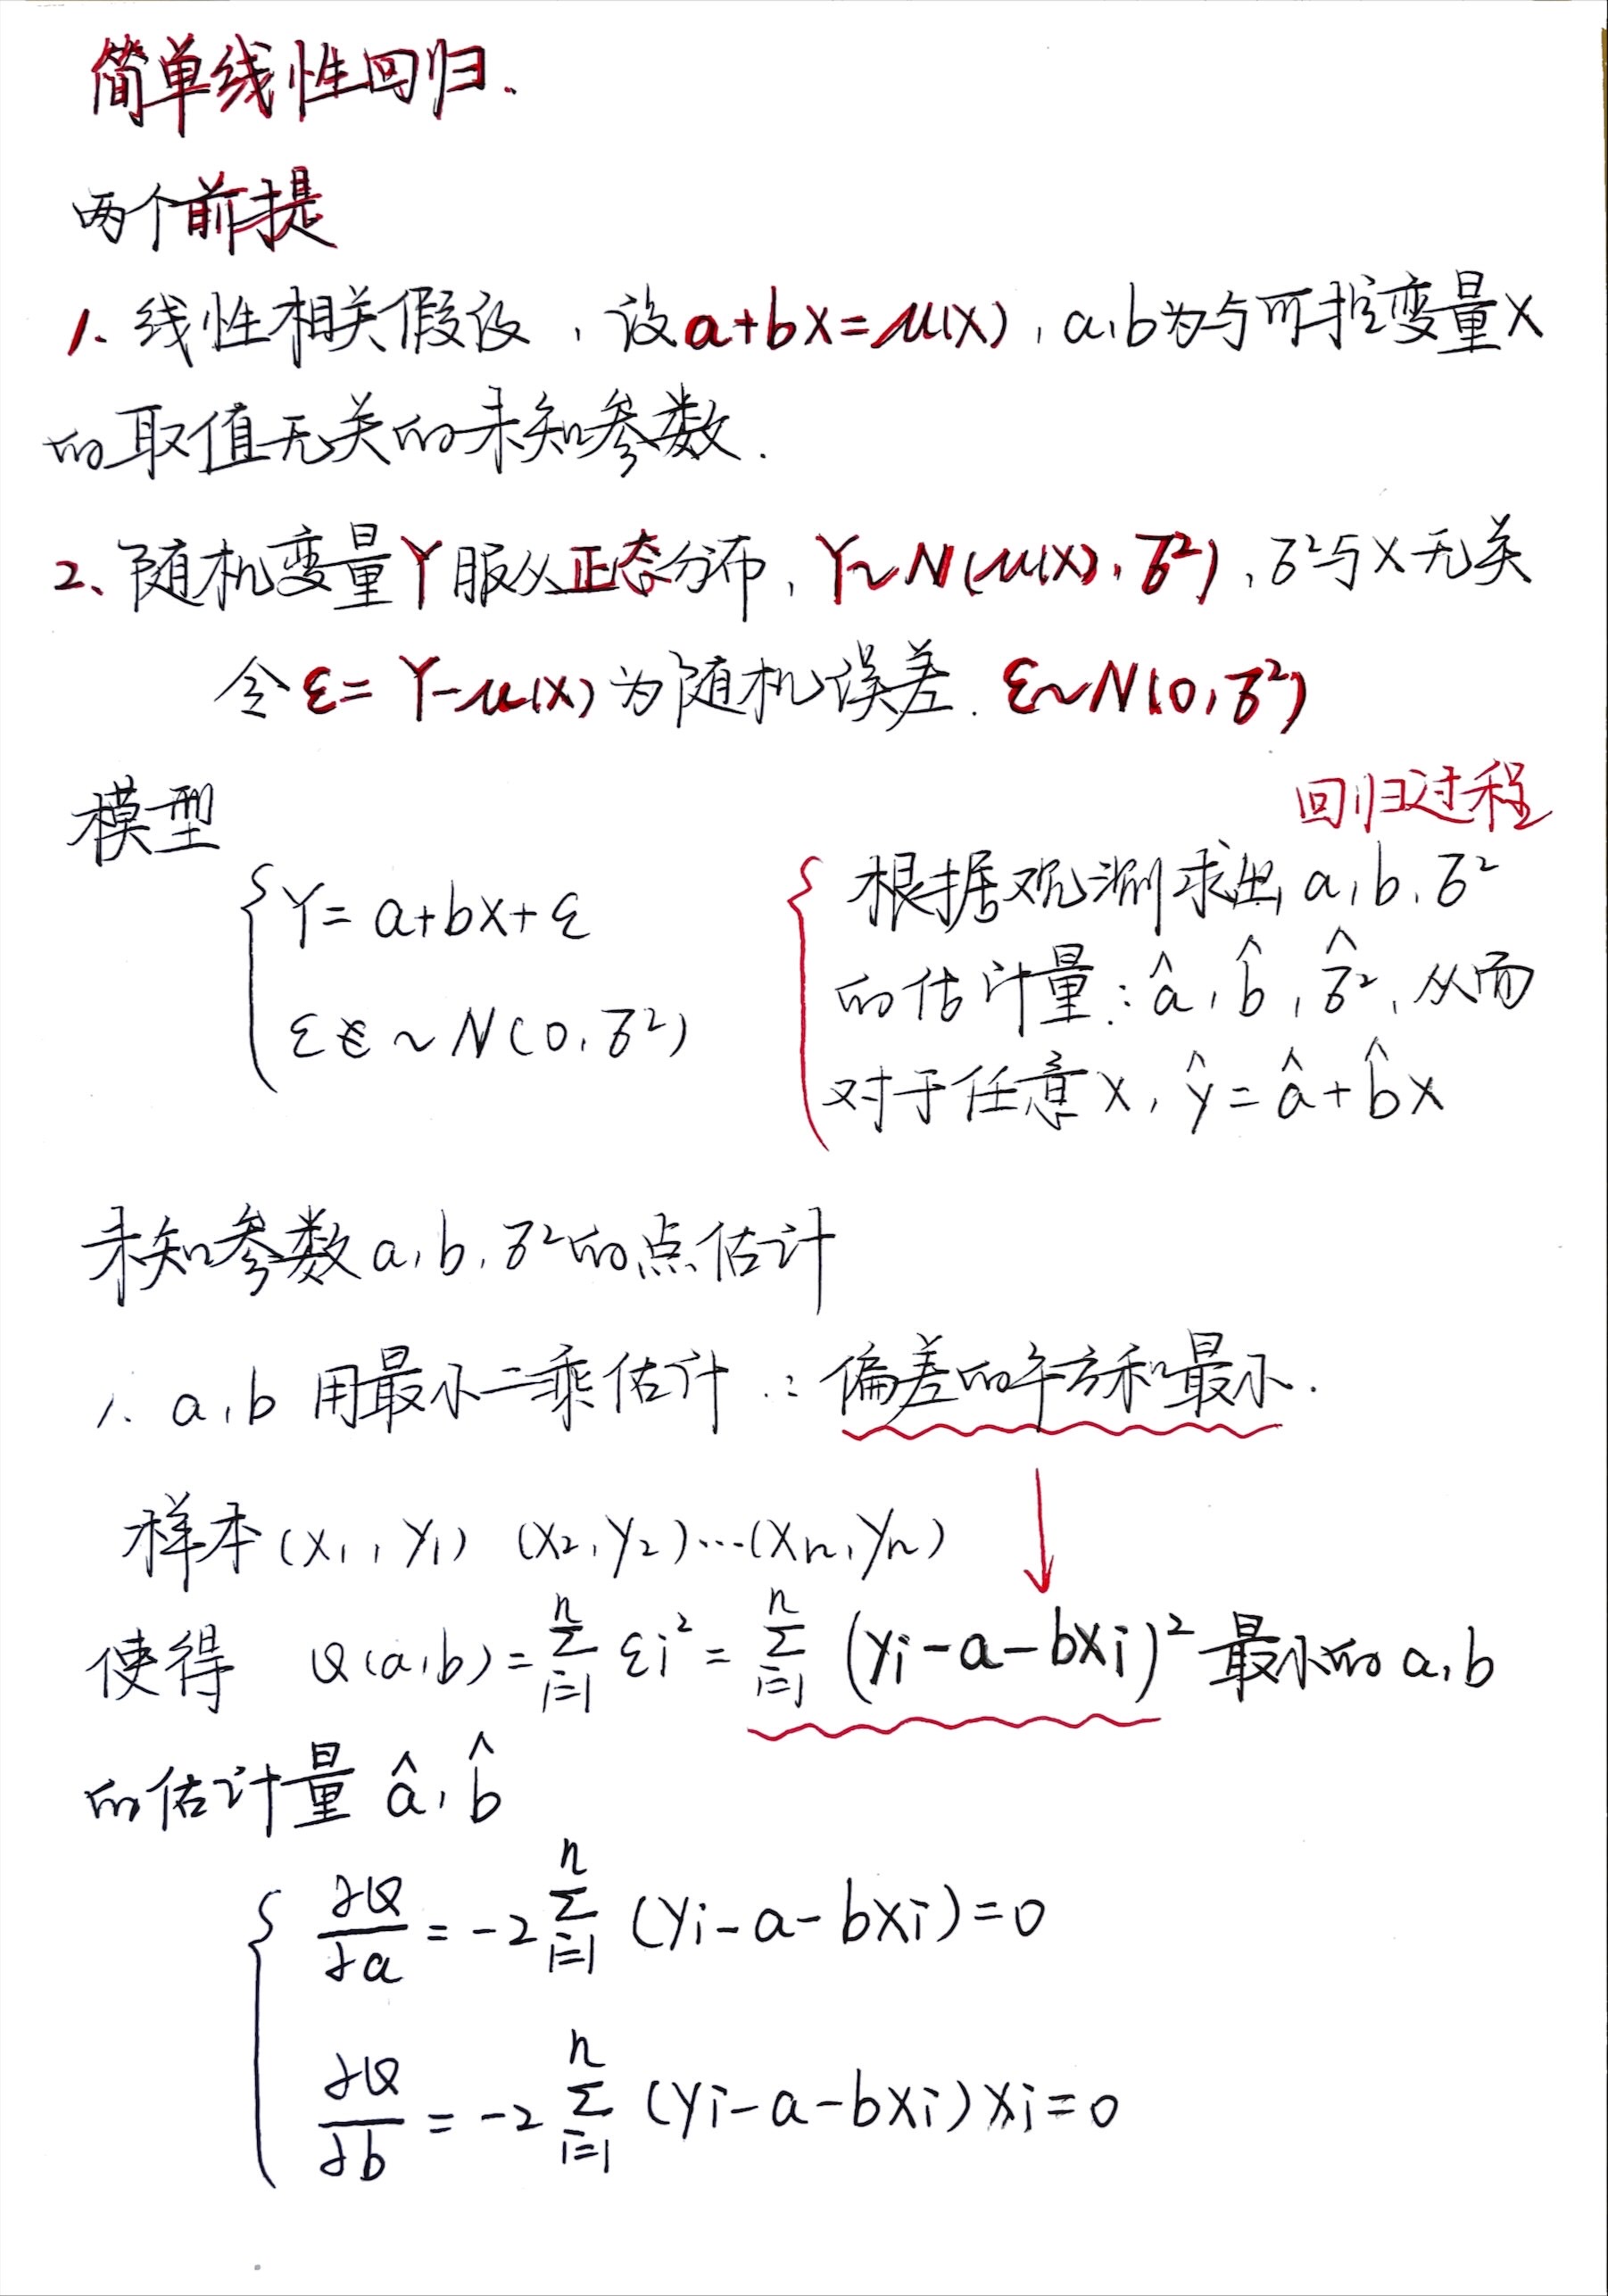 简单线性回归.
两个前提
1. 线性相关假设,设a+bx=μ(x),a,b为与可控变量x
的取值无关的未知参数.
2、随机变量Y服从正态分布,Y~N(μ(x),σ²),σ²与x无关
令ε=Y-μ(x)为随机误差.ε~N(0,σ²)
模型
Y=a+bx+ε
ε~N(0,σ²)
回归过程
根据观测求出a,b,σ²
的估计量:â,b̂,σ̂²,从而
对于任意x,ŷ=â+b̂x
未知参数a,b,σ²的点估计
1. a,b 用最小二乘估计∴偏差的平方和最小.
样本(x₁,y₁) (x₂,y₂)…(xn,yn)
使得 Q(a,b)=∑ⁿᵢ₌₁ εi²=∑ⁿᵢ₌₁ (yi-a-bxi)²最小的a,b
的估计量 â,b̂
∂Q/∂a=-2∑ⁿᵢ₌₁ (yi-a-bxi)=0
∂Q/∂b=-2∑ⁿᵢ₌₁ (yi-a-bxi)xi=0